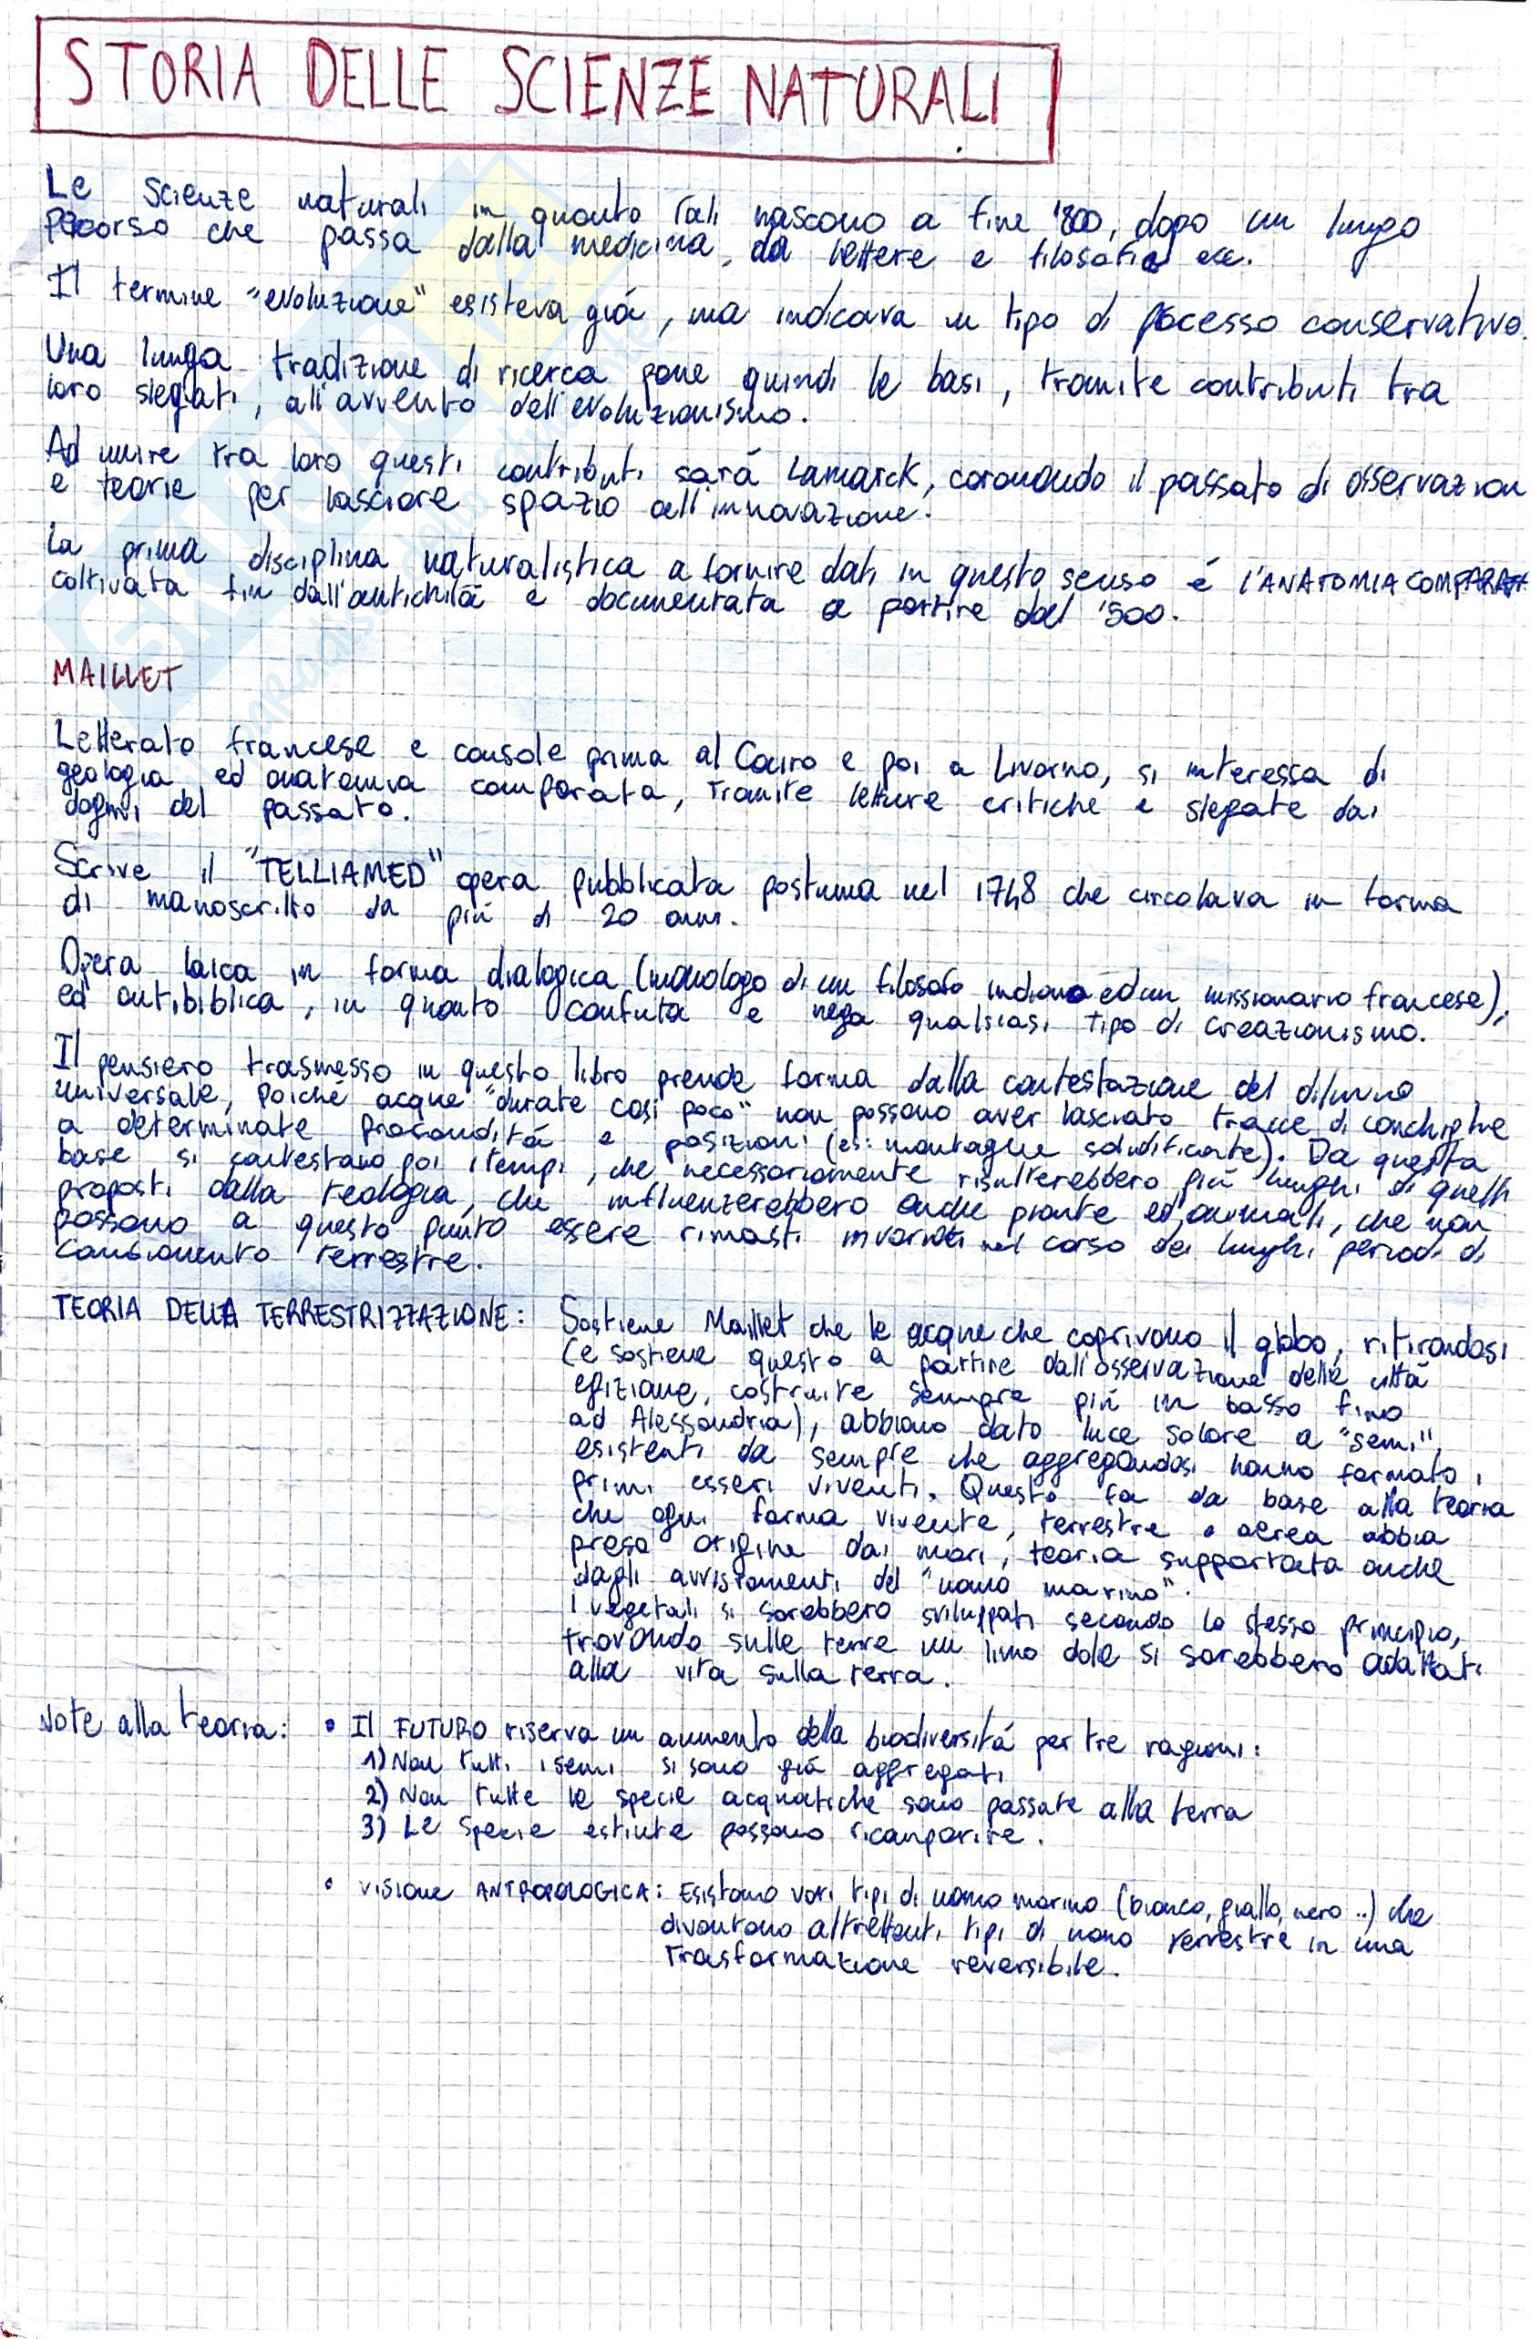 STORIA DELLE SCIENZE NATURALI
Le scienze naturali in quanto tali nascono a fine '800, dopo un lungo
percorso che passa dalla medicina, da lettere e filosofia ecc.
Il termine "evoluzione" esisteva giá, ma indicava un tipo di pocesso conservativo.
Una lunga tradizione di ricerca pone quindi le basi, tramite contributi tra
loro slegati, all'avvento dell'evoluzionismo.
Ad unire tra loro questi contributi sará Lamarck, coronando il passato di osservazion
e teorie per lasciare spazio all'innovazione.
La prima disciplina naturalistica a fornire dati in questo senso é l'ANATOMIA COMPARATA
coltivata fin dall'antichitá e documentata a partire dal '500.
MAILLET
Letterato francese e console prima al Cairo e poi a Livorno, si interessa di
geologia ed anatomia comparata, tramite letture critiche e slegate dai
dogmi del passato.
Scrive il "TELLIAMED" opera pubblicata postuma nel 1748 che circolava in forma
di manoscritto da piú di 20 anni.
Opera laica in forma dialogica (monologo di un filosofo indiano ed un missionario francese),
ed antibiblica, in quanto confuta e nega qualsiasi tipo di creazionismo.
Il pensiero trasmesso in questo libro prende forma dalla contestazione del diluvio
universale, poiché acque "durate cosí poco" non possono aver lasciato tracce di conchiglie
a determinate profonditá e posizioni (es: montagne solidificate). Da questa
base si contestano poi i tempi, che necessariamente risulterebbero piú lunghi di quelli
proposti dalla teologia, che influenzerebbero anche piante ed animali, che non
possono a questo punto essere rimasti invariati nel corso dei lunghi periodi di
cambiamento terrestre.
TEORIA DELLA TERRESTRIZZAZIONE: Sostiene Maillet che le acque che coprivano il globo, ritirandosi
(e sostiene questo a partire dall'osservazione delle cittá
egiziane, costruite sempre piú in basso fino
ad Alessandria), abbiano dato luce solare a "semi",
esistenti da sempre che aggregandosi hanno formato i
primi esseri viventi. Questo fa da base alla teoria
che ogni forma vivente, terrestre o aerea abbia
preso origine dai mari, teoria supportata anche
dagli avvistamenti del "uomo marino".
I vegetali si sarebbero sviluppati secondo lo stesso principio,
trovando sulle terre un limo dolce si sarebbero adattati
alla vita sulla terra.
Note alla teoria: • Il FUTURO riserva un aumento della biodiversitá per tre ragioni:
1) Non tutti i semi si sono giá aggregati
2) Non tutte le specie acquatiche sono passate alla terra
3) Le specie estinte possono ricomparire.
• VISIONE ANTROPOLOGICA: Esistono vari tipi di uomo marino (bianco, giallo, nero ..) che
diventano altrettanti tipi di uomo terrestre in una
trasformazione reversibile.